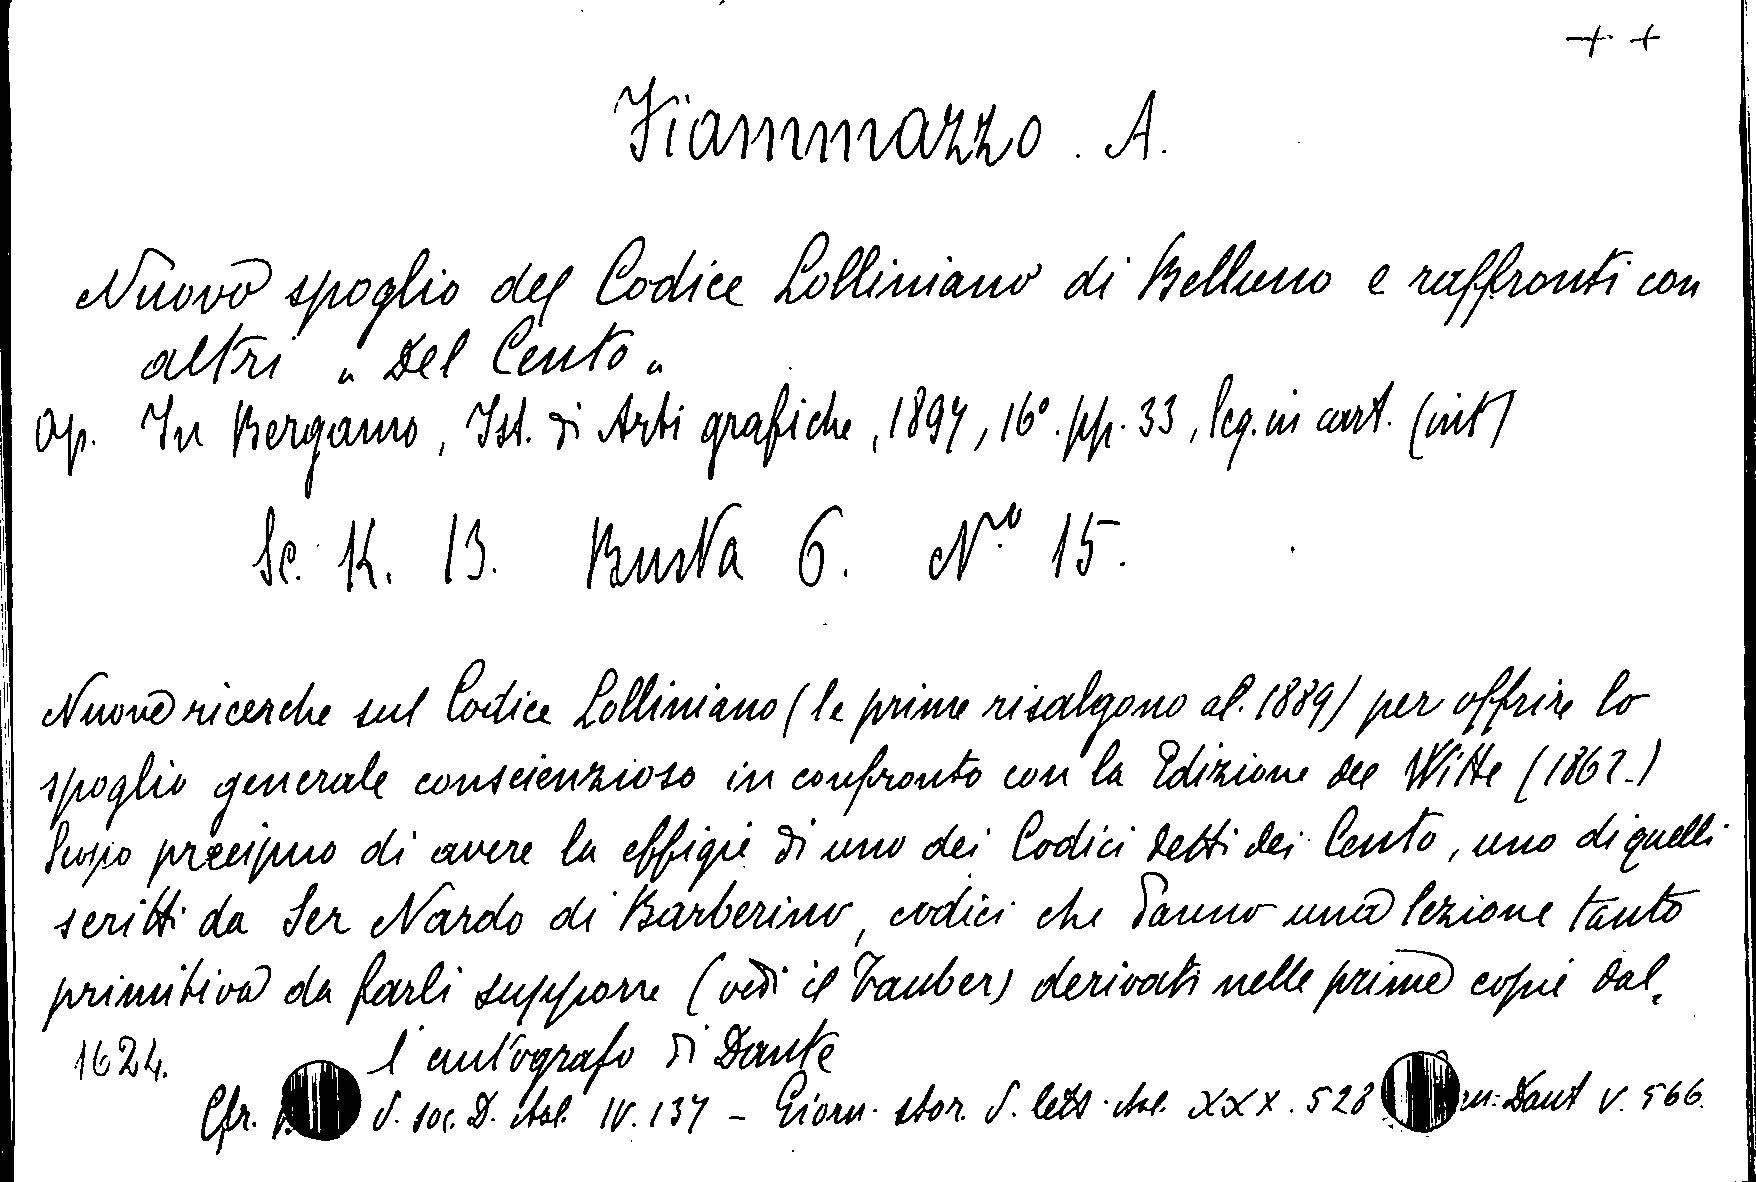 + +
Fiammazzo. A.
Nuovo spoglio del Codice Lolliniano di Belluno e raffronti con
altri „ Del Cento „
Op. In Bergamo, Ist. di Arti grafiche, 1897, 16°. pp. 33, leg. in cart. (int)
Sc. K. 13. Busta 6. N.ro 15.
Nuove ricerche sul Codice Lolliniano (le prime risalgono al. 1889) per offrire lo
spoglio generale conscienzioso in confronto con la Edizione del Witte (1862.)
Scopo precipuo di avere la effigie di uno dei Codici detti dei Cento, uno di quelli
scritti da Ser Nardo di Barberino, codici che danno una lezione tanto
primitiva da farli supporre (vedi il Täuber) derivati nelle prime copie dal,
1624. l'autografo di Dante
Cfr. d. soc. D. ital. IV. 137 – Giorn. stor. d. lett. ital. XXX. 528 Dant V. 566.